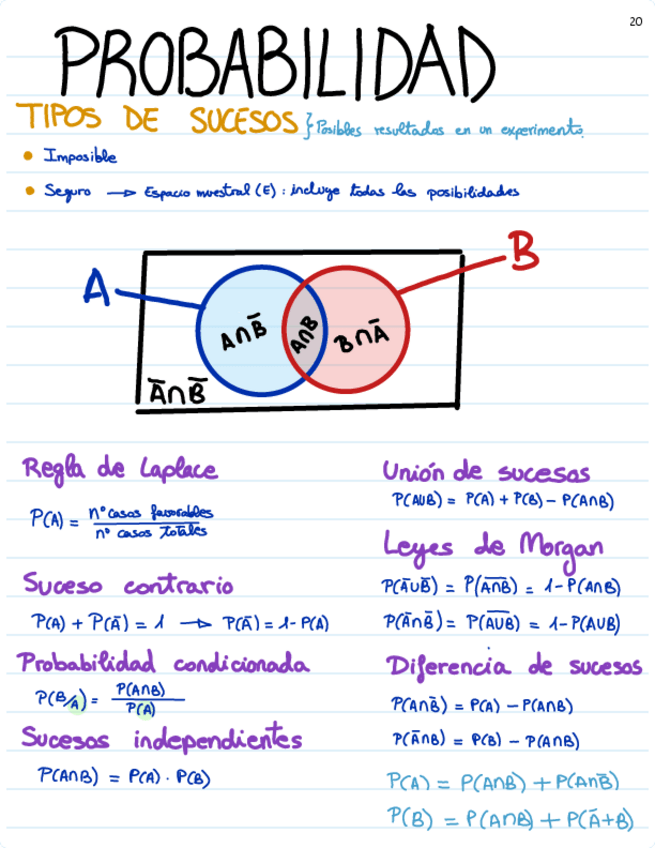 20
PROBABILIDAD
TIPOS DE SUCESOS } Posibles resultados en un experimento.
• Imposible
• Seguro → Espacio muestral (E) : incluye todas las posibilidades
A
B
A∩B̅
A∩B
B∩A̅
A̅∩B̅
Regla de Laplace
P(A) = nº casos favorables / nº casos totales
Suceso contrario
P(A) + P(A̅) = 1 → P(A̅) = 1 - P(A)
Probabilidad condicionada
P(B/A) = P(A∩B) / P(A)
Sucesos independientes
P(A∩B) = P(A) · P(B)
Unión de sucesos
P(A∪B) = P(A) + P(B) - P(A∩B)
Leyes de Morgan
P(A̅∪B̅) = P(A̅∩̅B̅) = 1 - P(A∩B)
P(A̅∩B̅) = P(A̅∪̅B̅) = 1 - P(A∪B)
Diferencia de sucesos
P(A∩B̅) = P(A) - P(A∩B)
P(A̅∩B) = P(B) - P(A∩B)
P(A) = P(A∩B) + P(A∩B̅)
P(B) = P(A∩B) + P(A̅+B)